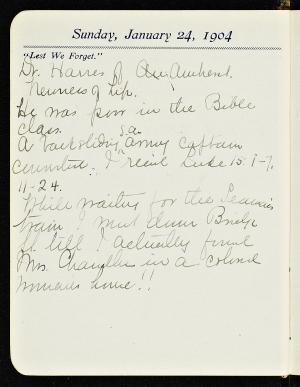 Sunday, January 24, 1904
"Lest We Forget."
Dr. Harris of Amherst.
Newness of Life.
He was poor in the Bible
class.
A backsliding S. A. army captain
converted. I read Luke 15 1-7,
11-24.
While waiting for the
train I went down Bridge
St till I actually found
Mrs. Chandler in a colored
womans home!!